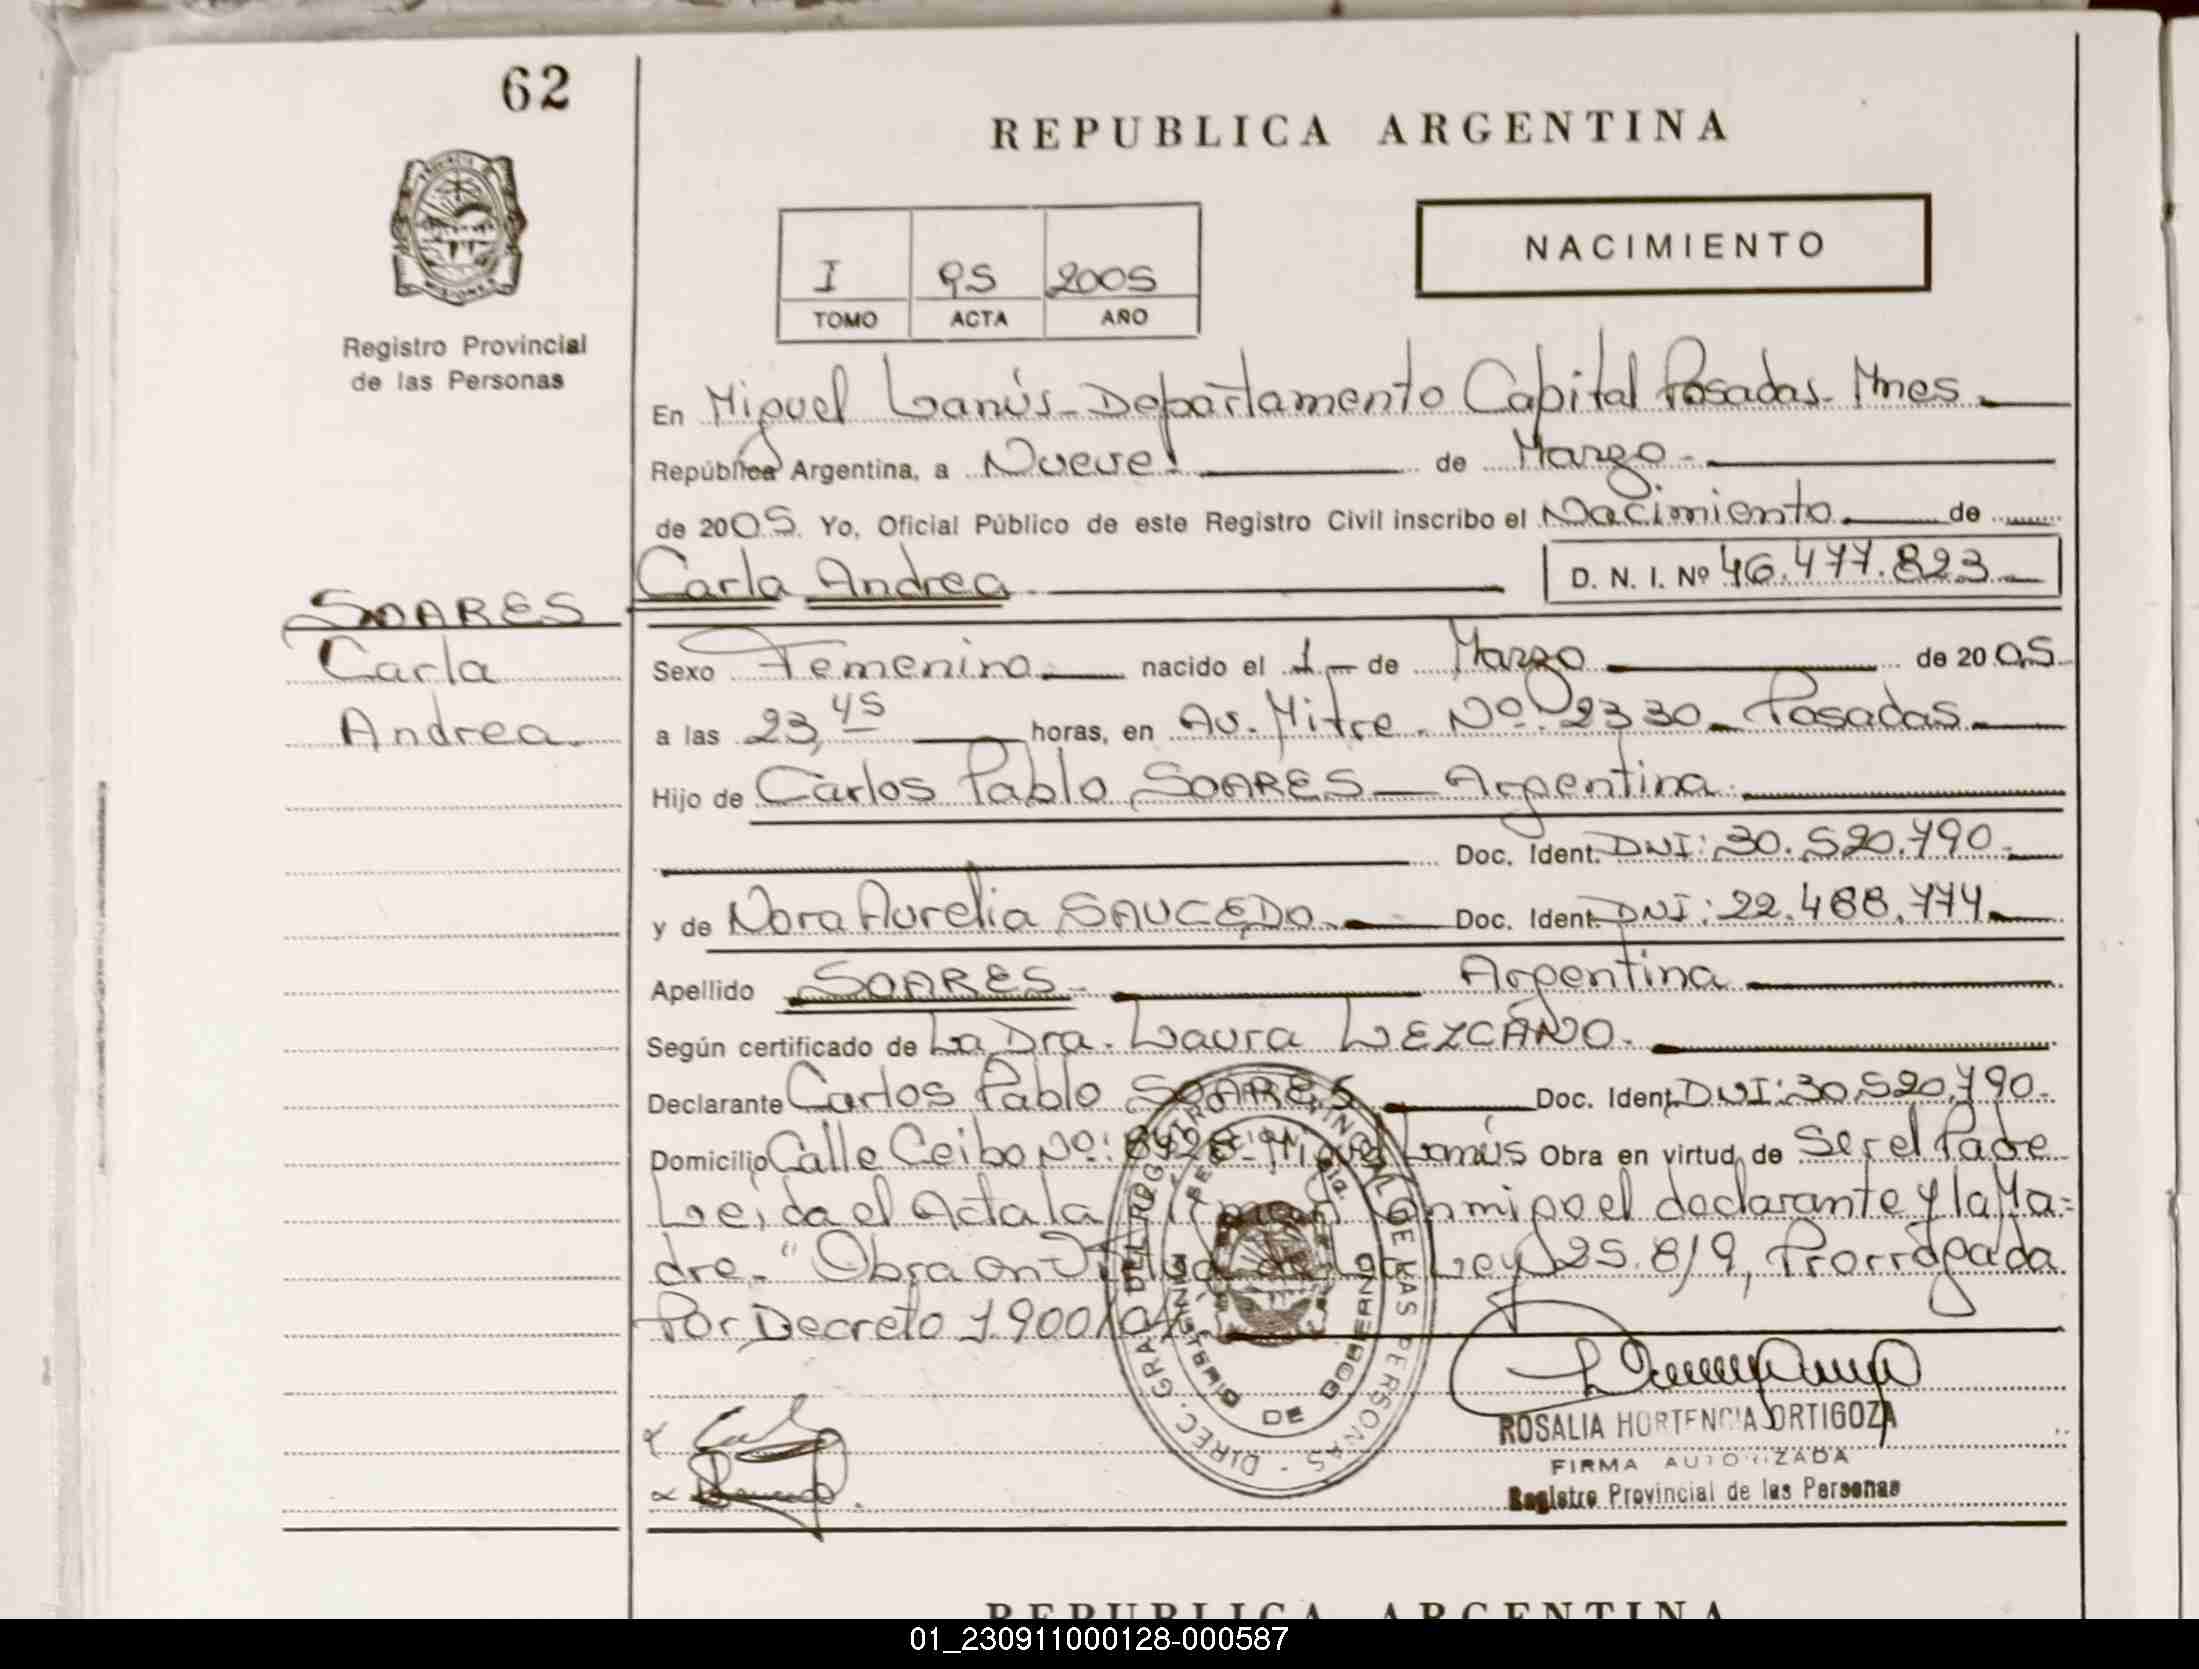 62
REPUBLICA ARGENTINA
NACIMIENTO
I 95 2005
TOMO ACTA AÑO
Registro Provincial
de las Personas
En Miguel Lanús - Departamento Capital Posadas - Mnes.
República Argentina, a Nueve de Marzo
de 2005. Yo, Oficial Público de este Registro Civil inscribo el Nacimiento de
Carla Andrea D. N. I. Nº 46.477.823
SOARES
Carla
Andrea.
Sexo Femenino nacido el 1 de Marzo de 2005
a las 23,45 horas, en Av. Mitre. Nº 2330 - Posadas
Hijo de Carlos Pablo SOARES - Argentina
Doc. Ident. DNI: 30.520.790
y de Nora Aurelia SAUCEDO Doc. Ident. DNI: 22.488.774
Apellido SOARES - Argentina
Según certificado de La Dra. Laura LEZCANO.
Declarante Carlos Pablo SOARES Doc. Ident. DNI: 30.520.790
Domicilio Calle Ceibo Nº: 8428 - Miguel Lanús Obra en virtud de Ser el Padre
Leída el Acta la Firman Conmigo el declarante y la Ma=
dre.- "Obra en Virtud de la Ley 25.819, Prorrogada
Por Decreto 1900/04
DIREC. GRAL DEL REGISTRO PROVINCIAL DE LAS PERSONAS
MINISTERIO DE GOBIERNO
ROSALIA HORTENCIA ORTIGOZA
FIRMA AUTORIZADA
Registro Provincial de las Personas
REPUBLICA ARGENTINA
01_230911000128-000587